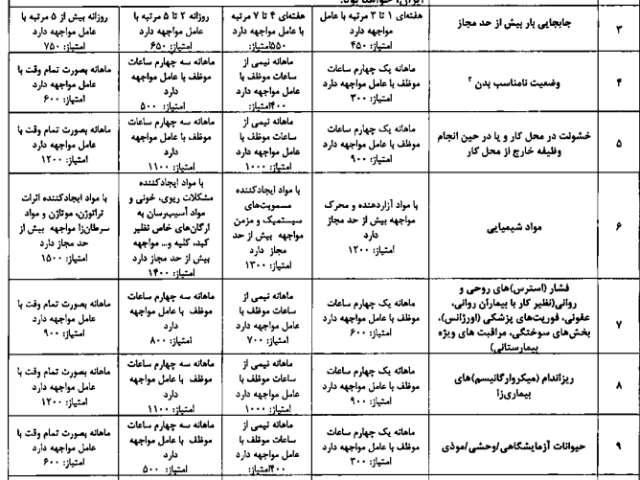 ایران، خواهد بود.
۳
جابجایی بار بیش از حد مجاز
هفته‌ای ۱ تا ۳ مرتبه با عامل
مواجهه دارد
امتیاز: ۴۵۰
هفته‌ای ۴ تا ۷ مرتبه
با عامل مواجهه دارد
امتیاز: ۵۵۰
روزانه ۲ تا ۵ مرتبه با
عامل مواجهه دارد
امتیاز: ۶۵۰
روزانه بیش از ۵ مرتبه با
عامل مواجهه دارد
امتیاز: ۷۵۰
۴
وضعیت نامناسب بدن ۲
ماهانه یک چهارم ساعات
موظف با عامل مواجهه دارد
امتیاز: ۳۰۰
ماهانه نیمی از
ساعات موظف با
عامل مواجهه دارد
امتیاز: ۴۰۰
ماهانه سه چهارم ساعات
موظف با عامل مواجهه
دارد
امتیاز: ۵۰۰
ماهانه بصورت تمام وقت با
عامل مواجهه دارد
امتیاز: ۶۰۰
۵
خشونت در محل کار و یا در حین انجام
وظیفه خارج از محل کار
ماهانه یک چهارم ساعات
موظف با عامل مواجهه دارد
امتیاز: ۹۰۰
ماهانه نیمی از
ساعات موظف با
عامل مواجهه دارد
امتیاز: ۱۰۰۰
ماهانه سه چهارم ساعات
موظف با عامل مواجهه
دارد
امتیاز: ۱۱۰۰
ماهانه بصورت تمام وقت با
عامل مواجهه دارد
امتیاز: ۱۲۰۰
۶
مواد شیمیایی
با مواد آزاردهنده و محرک
مواجهه بیش از حد مجاز
دارد
امتیاز: ۱۲۰۰
با مواد ایجادکننده
مسمومیت‌های
سیستمیک و مزمن
مواجهه بیش از حد
مجاز دارد
امتیاز: ۱۳۰۰
با مواد ایجادکننده
مشکلات ریوی، خونی و
مواد آسیب‌رسان به
ارگان‌های خاص نظیر
کبد، کلیه و... مواجهه
بیش از حد مجاز دارد
امتیاز: ۱۴۰۰
با مواد ایجادکننده اثرات
تراتوژن، موتاژن و مواد
سرطان‌زا مواجهه بیش از
حد مجاز دارد
امتیاز: ۱۵۰۰
۷
فشار (استرس)های روحی و
روانی(نظیر کار با بیماران روانی،
عفونی، فوریت‌های پزشکی (اورژانس)،
بخش‌های سوختگی، مراقبت های ویژه
بیمارستانی)
ماهانه یک چهارم ساعات
موظف با عامل مواجهه دارد
امتیاز: ۶۰۰
ماهانه نیمی از
ساعات موظف با
عامل مواجهه دارد
امتیاز: ۷۰۰
ماهانه سه چهارم ساعات
موظف با عامل مواجهه
دارد
امتیاز: ۸۰۰
ماهانه بصورت تمام وقت با
عامل مواجهه دارد
امتیاز: ۹۰۰
۸
ریزاندام (میکروارگانیسم)های
بیماری‌زا
ماهانه یک چهارم ساعات
موظف با عامل مواجهه دارد
امتیاز: ۹۰۰
ماهانه نیمی از
ساعات موظف با
عامل مواجهه دارد
امتیاز: ۱۰۰۰
ماهانه سه چهارم ساعات
موظف با عامل مواجهه
دارد
امتیاز: ۱۱۰۰
ماهانه بصورت تمام وقت با
عامل مواجهه دارد
امتیاز: ۱۲۰۰
۹
حیوانات آزمایشگاهی/وحشی/موذی
ماهانه یک چهارم ساعات
موظف با عامل مواجهه دارد
امتیاز: ۳۰۰
ماهانه نیمی از
ساعات موظف با
عامل مواجهه دارد
امتیاز: ۴۰۰
ماهانه سه چهارم ساعات
موظف با عامل مواجهه
دارد
امتیاز: ۵۰۰
ماهانه بصورت تمام وقت با
عامل مواجهه دارد
امتیاز: ۶۰۰